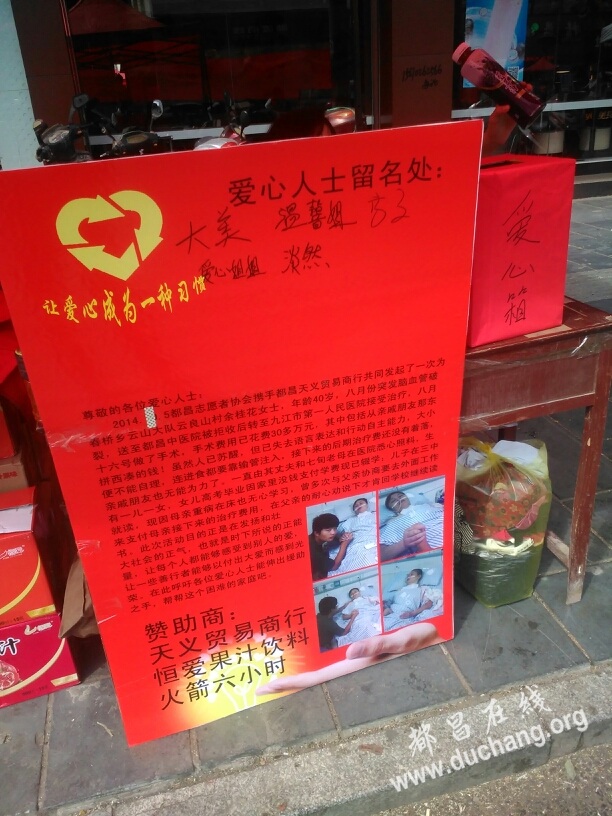 爱心人士留名处：
大美 温馨姐
爱心姐姐
让爱心成为一种习惯
爱心箱
尊敬的各位爱心人士，
2014 5都昌志愿者协会携手都昌天义贸易商行共同发起了一次为
春桥乡云山大队云良山村余桂花女士，年龄40岁，八月份突发脑血管破
裂，送至都昌中医院被拒收后转至九江市第一人民医院接受治疗，八月
十六号做了手术，手术费用已花费30多万元，其中包括从亲戚朋友那东
拼西凑的钱！虽然人已苏醒，但已失去语言表达和行动自主能力，大小
便不能自理，连进食都要靠输管注入，接下来的后期治疗费还没有着落，
亲戚朋友也无能为力了，一直由其丈夫和七旬老母在医院悉心照料，生
有一儿一女，女儿高考毕业因家里没钱支付学费现已辍学，儿子在三中
就读，现因母亲重病在床也无心学习，曾多次与父亲协商要去外面工作
来支付母亲接下来的治疗费用，在父亲的耐心劝说下才肯回学校继续读
书，此次活动目的正是在发扬和壮
大社会的正气，也就是时下所说的正能
量，让每个人都能够感受到别人的爱，
让一些善行者能够以付出大爱而感到光
荣，在此呼吁各位爱心人士能伸出援助
之手，帮帮这个困难的家庭吧
赞助商：
天义贸易商行
恒爱果汁饮料
火箭六小时
汁
都昌在线
www.duchang.org